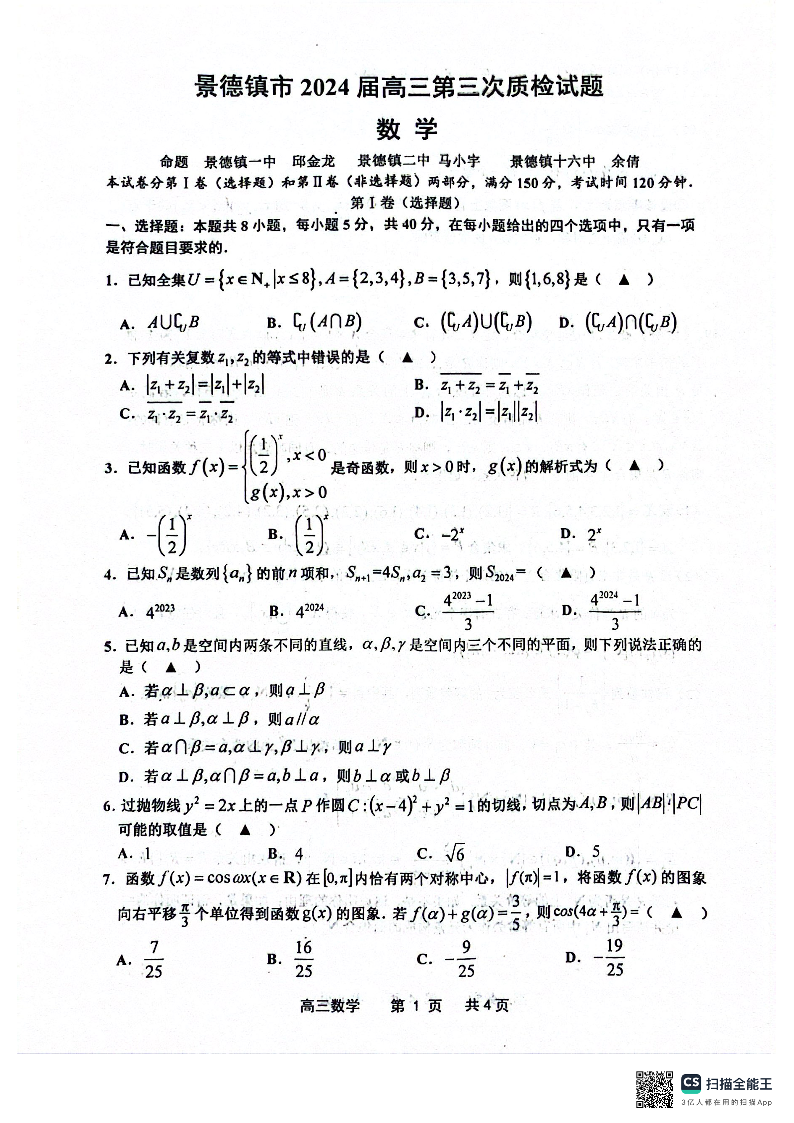 景德镇市 2024 届高三第三次质检试题
数 学
命题 景德镇一中 邱金龙 景德镇二中 马小宇 景德镇十六中 余倩
本试卷分第Ⅰ卷（选择题）和第Ⅱ卷（非选择题）两部分，满分 150 分，考试时间 120 分钟．
第Ⅰ卷（选择题）
一、选择题：本题共 8 小题，每小题 5 分，共 40 分，在每小题给出的四个选项中，只有一项
是符合题目要求的．
1．已知全集 U = {x∈N₊|x≤8}, A = {2,3,4}, B = {3,5,7}，则{1,6,8}是（ ▲ ）
A．A∪∁ᵤB B．∁ᵤ(A∩B) C．(∁ᵤA)∪(∁ᵤB) D．(∁ᵤA)∩(∁ᵤB)
2．下列有关复数 z₁,z₂ 的等式中错误的是（ ▲ ）
A．|z₁+z₂|=|z₁|+|z₂| B．\overline{z₁+z₂}=\overline{z₁}+\overline{z₂}
C．\overline{z₁·z₂}=\overline{z₁}·\overline{z₂} D．|z₁·z₂|=|z₁||z₂|
3．已知函数 f(x)={(1/2)ˣ, x<0; g(x), x>0 是奇函数，则 x>0 时，g(x) 的解析式为（ ▲ ）
A．-(1/2)ˣ B．(1/2)ˣ C．-2ˣ D．2ˣ
4．已知 Sₙ 是数列{aₙ}的前 n 项和，Sₙ₊₁=4Sₙ, a₂=3，则 S₂₀₂₄=（ ▲ ）
A．4²⁰²³ B．4²⁰²⁴ C．(4²⁰²³-1)/3 D．(4²⁰²⁴-1)/3
5．已知 a,b 是空间内两条不同的直线，α,β,γ 是空间内三个不同的平面，则下列说法正确的
是（ ▲ ）
A．若 α⊥β, a⊂α，则 a⊥β
B．若 a⊥β, α⊥β，则 a//α
C．若 α∩β=a, α⊥γ, β⊥γ，则 a⊥γ
D．若 α⊥β, α∩β=a, b⊥a，则 b⊥α 或 b⊥β
6．过抛物线 y²=2x 上的一点 P 作圆 C:(x-4)²+y²=1 的切线，切点为 A,B，则|AB|·|PC|
可能的取值是（ ▲ ）
A．1 B．4 C．√6 D．5
7．函数 f(x)=cosωx(x∈R) 在[0,π]内恰有两个对称中心，|f(π)|=1，将函数 f(x) 的图象
向右平移 π/3 个单位得到函数 g(x) 的图象．若 f(α)+g(α)=3/5，则 cos(4α+π/3)=（ ▲ ）
A．7/25 B．16/25 C．-9/25 D．-19/25
高三数学 第 1 页 共 4 页
CS 扫描全能王
3亿人都在用的扫描App